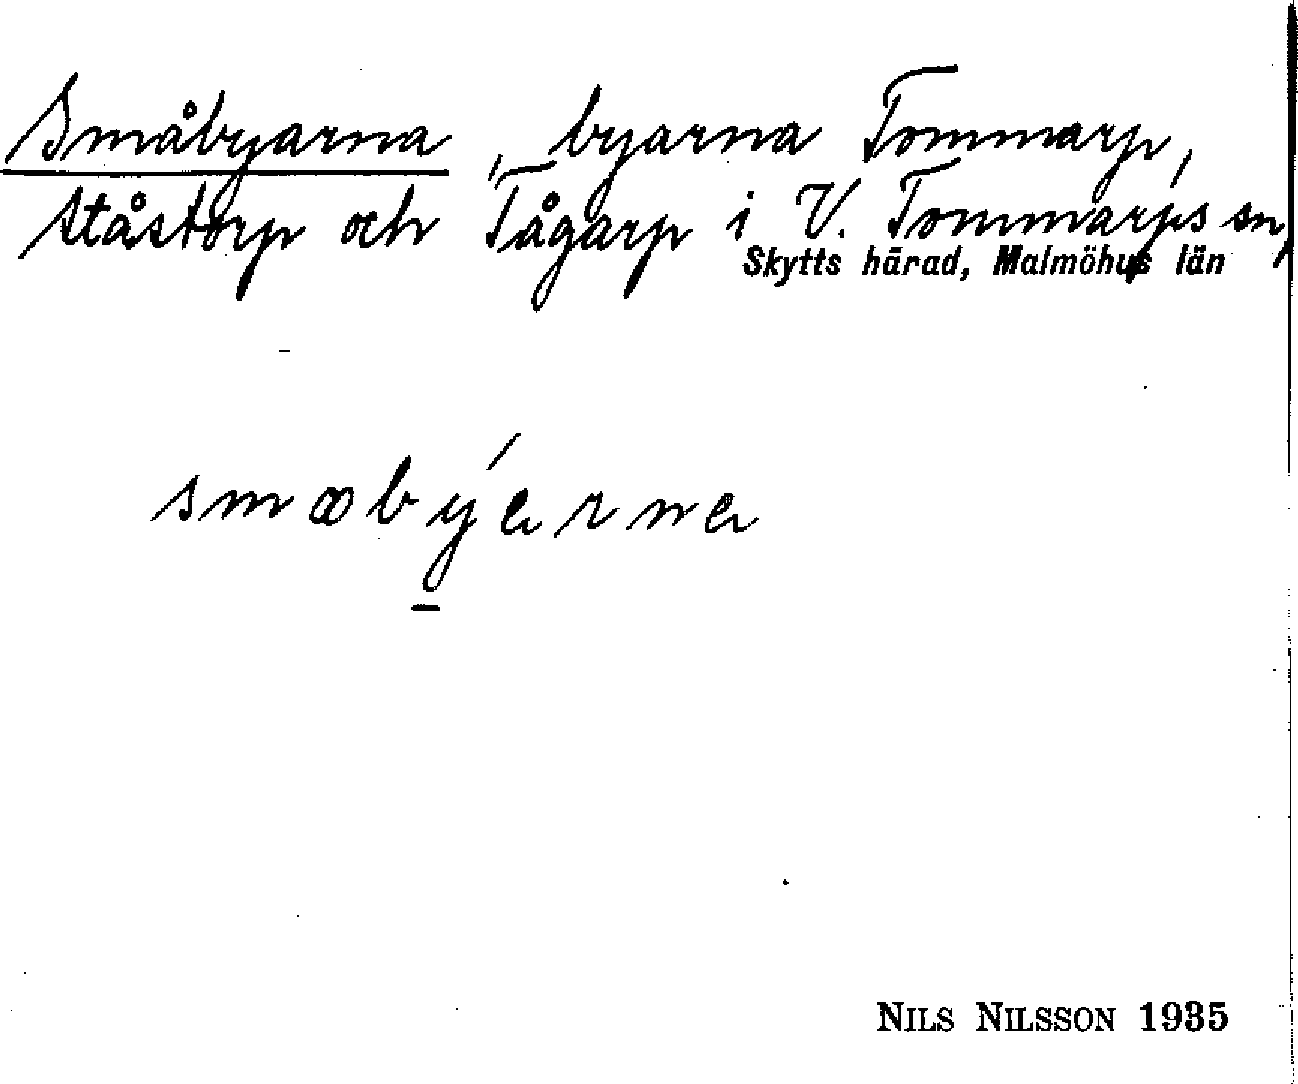 Småbyarna, byarna Tommarp,
Ståstorp och Tågarp i V. Tommarps sn,
Skytts härad, Malmöhus län
NILS NILSSON 1935